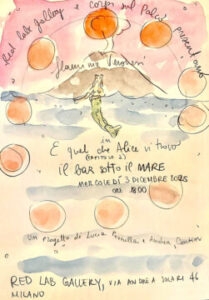 Red Lab Gallery e Corpi sul Palco presentano
in
E quel che Alice vi trovò
(CAPITOLO 2)
il bar sotto il MARE
MERCOLEDÌ 3 DICEMBRE 2025
ore 18:00
Un progetto di Lucia
RED LAB GALLERY, VIA ANDREA SOLARI 46
MILANO